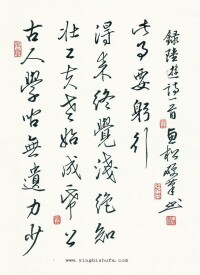 古人學問無遺力少
壮工夫老始成帋上
得来終覺淺絶知
此事要躬行
録陸游詩一首
www.yingbishufa.com